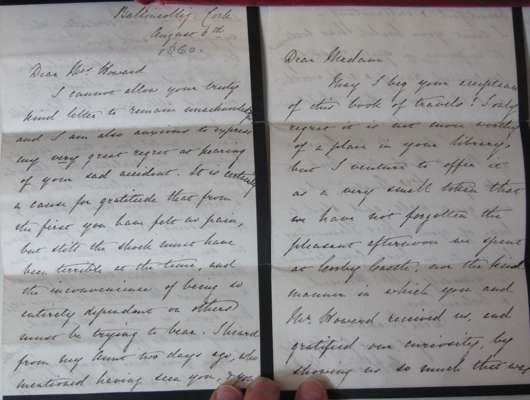 Ballincollig, Cork
August 6th
1860.
Dear Mrs Howard
I cannot allow your truly
kind letter to remain unacknowledged
and I am also anxious to express
my very great regret at hearing
of your sad accident. It is certainly
a cause for gratitude that from
the first you have felt no pain,
but still the shock must have
been terrible at the time, and
the inconvenience of being so
entirely dependant on others
must be trying to bear. I heard
from my Aunt two days ago, who
mentioned having seen you,
Dear Madam
May I beg your acceptance
of this book of travels? I only
regret it is not more worthy
of a place in your library,
but I venture to offer it
as a very small token that
we have not forgotten the
pleasant afternoon we spent
at Corby Castle, nor the kind
manner in which you and
Mr Howard received us, and
gratified our curiosity, by
showing us so much that was